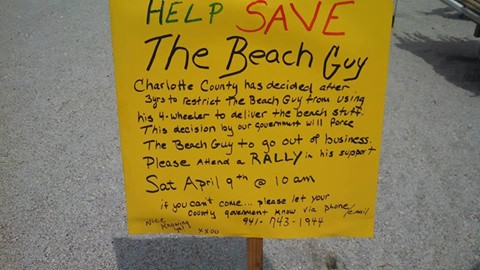 HELP SAVE
The Beach Guy
Charlotte County has decided after
3yrs to restrict The Beach Guy from using
his 4-wheeler to deliver the beach stuff.
This decision by our government will force
The Beach Guy to go out of business.
Please Attend a RALLY in his support
Sat April 9th @ 10 am
if you can't come... please let your
County government know via phone/email
941-743-1944
Nice
Knowing
ya!
xxoo